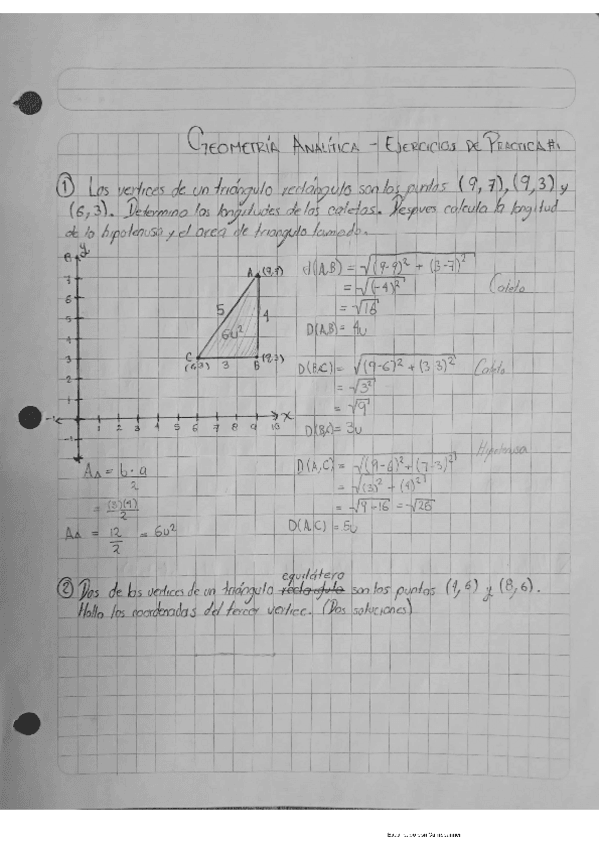 GEOMETRÍA ANALÍTICA - EJERCICIOS DE PRACTICA #1
① Los vertices de un triángulo rectángulo son los puntos (9,7), (9,3) y
(6,3). Determina las longitudes de los catetos. Despues calcula la longitud
de la hipotenusa y el area de triangulo formado.
y
8
7
6
5
4
3
2
1
-1
-1
1 2 3 4 5 6 7 8 9 10
x
A (9,7)
5
4
6u²
C
(6,3)
3
B
(9,3)
d(A,B) = √(9-9)² + (3-7)²
= √(-4)²
= √16
D(A,B) = 4u
Cateto
D(B,C) = √(9-6)² + (3-3)²
= √3²
= √9
D(B,C) = 3u
Cateto
D(A,C) = √(9-6)² + (7-3)²
= √(3)² + (4)²
= √9-16 = √25
D(A,C) = 5u
Hipotenusa
A△ = b·a
2
= (3)(4)
2
A△ = 12 = 6u²
2
equilátero
② Dos de los vertices de un triángulo rectangulo son los puntos (4,6) y (8,6).
Halla las coordenadas del tercer vertice. (Dos soluciones)